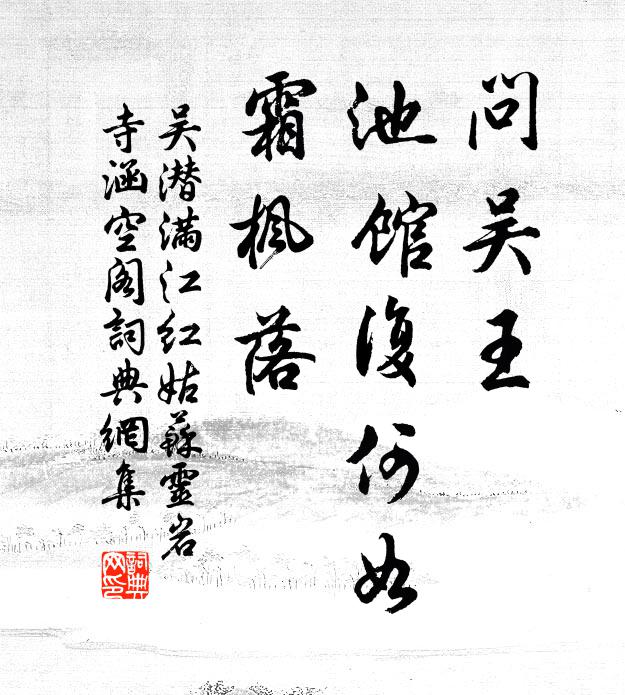 问吴王
池馆复何如
霜枫落
吴潜满江红姑苏灵岩
寺涵空阁詞典網集
詞典网印